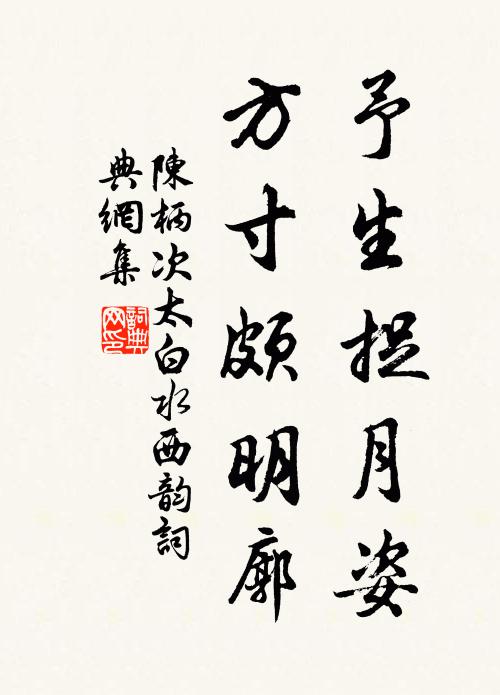 予生捉月姿
方寸頗明廓
陳柄次太白水西韵詞
典網集
詞典网印